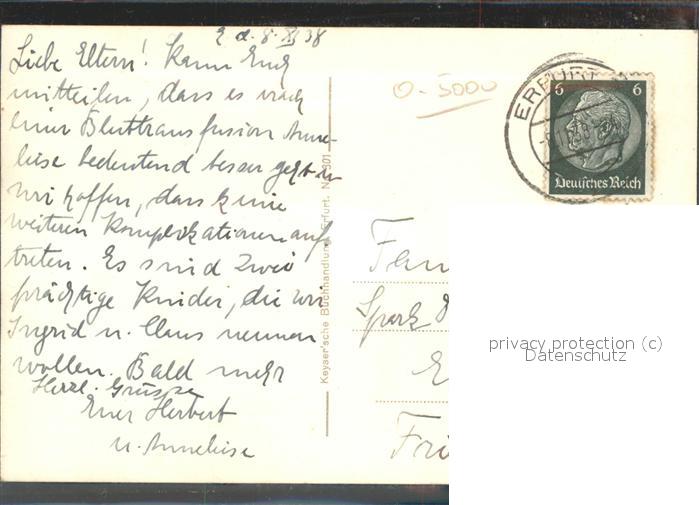 d. 8. XI 38
Liebe Eltern! Kann Euch
mitteilen, dass es nach
einer Bluttransfusion Anne-
liese bedeutend besser geht u.
wir hoffen, dass keine
weiteren Komplikationen auf-
treten. Es sind zwei
prächtige Kinder, die wir
Ingrid u. Claus nennen
wollen. Bald mehr
Herzl. Grüsse
Euer Herbert
u. Anneliese
Keyser'sche Buchhandlung, Erfurt.
0-5000
ERFURT
6 6
Deutsches Reich
Fam
Spark
E
Fri
privacy protection (c)
Datenschutz